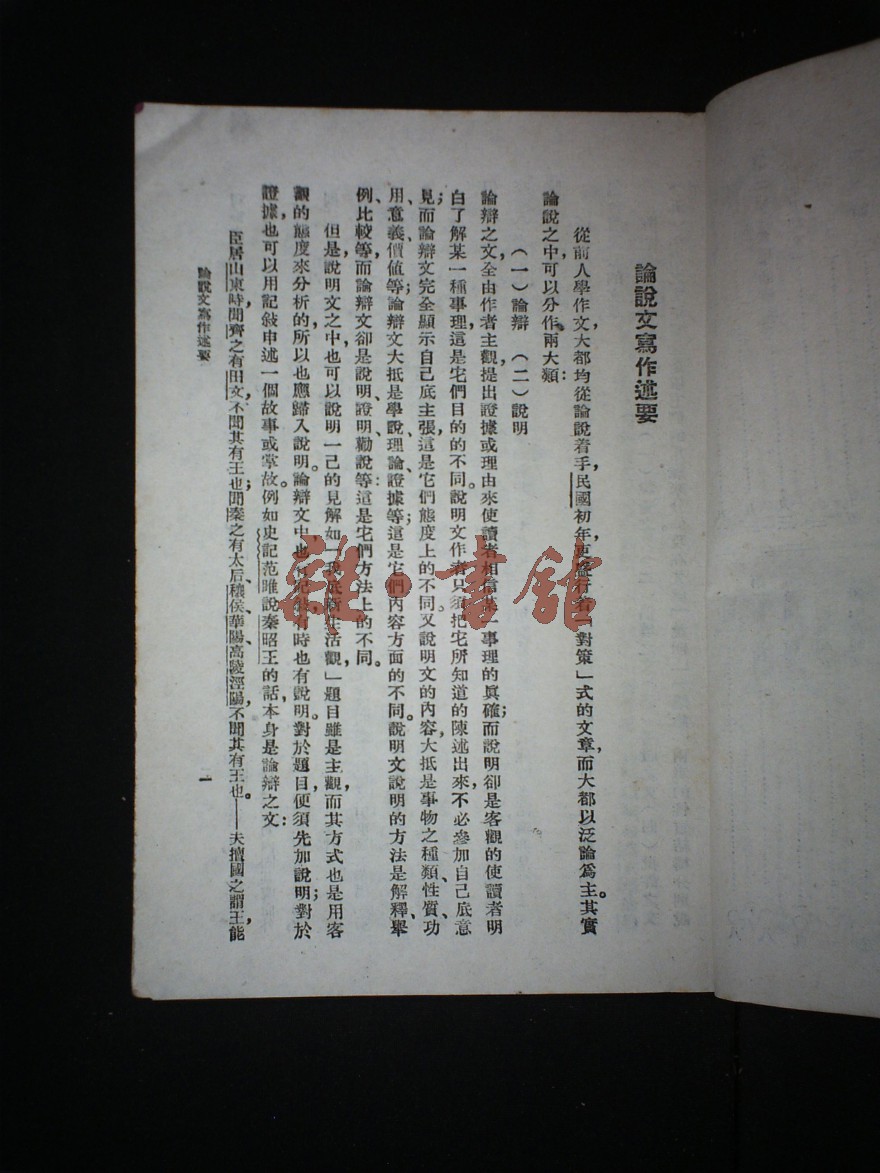 論說文寫作述要
從前人學作文，大都均從論說着手，民國初年，更盛行着「對策」一式的文章，而大都以泛論爲主。其實
論說之中，可以分作兩大類：
（一）論辯　（二）說明
論辯之文，全由作者主觀，提出證據或理由來，使讀者相信某一事理的眞確；而說明卻是客觀的使讀者明
白了解某一種事理，這是它們目的的不同。說明文作者只須把它所知道的陳述出來，不必參加自己底意
見；而論辯文完全顯示自己底主張，這是它們態度上的不同。又說明文的內容，大抵是事物之種類、性質、功
用、意義、價值等；論辯文大抵是學說、理論、證據等；這是它們內容方面的不同。說明文說明的方法是解釋、舉
例、比較等，而論辯文卻是說明、證明、勸說等：這是它們方法上的不同。
但是，說明文之中也可以說明一己的見解，如「我底新生活觀」，題目雖是主觀，而其方式也是用客
觀的態度來分析的，所以也應歸入說明。論辯文中，也有記敍，有時也有說明。對於題目，便須先加說明；對於
證據，也可以用記敍申述一個故事或掌故。例如史記范雎說秦昭王的話，本身是論辯之文：
臣居山東時，聞齊之有田文，不聞其有王也；聞秦之有太后穰侯華陽高陵涇陽，不聞其有王也。——夫擅國之謂王，能
論說文寫作述要
一
雜·書館